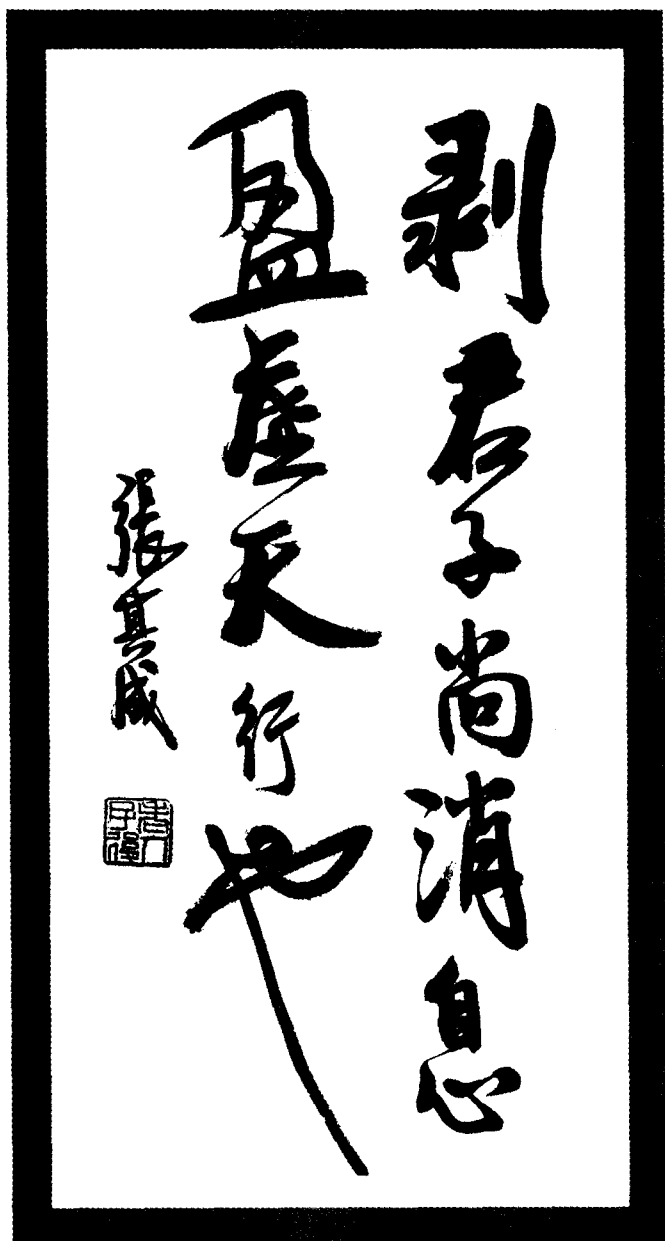 剥君子尚消息
盈虚天行也
張其成